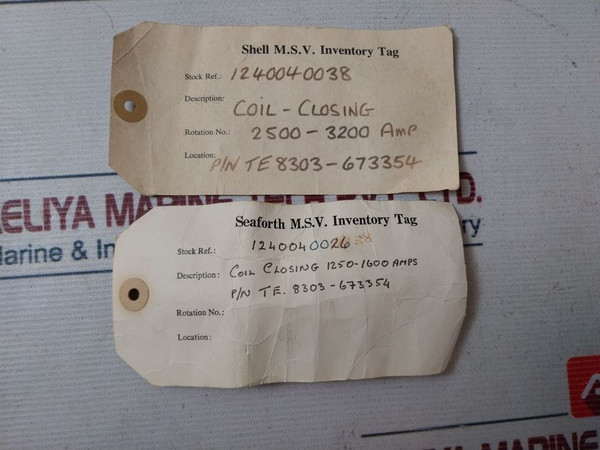 Shell M.S.V. Inventory Tag
Stock Ref.: 1240040038
Description: COIL - CLOSING
Rotation No.: 2500 - 3200 AMP
Location: P/N TE 8303 - 673354
ELIYA MARINE TECH PVT. LTD.
Marine & In
Seaforth M.S.V. Inventory Tag
Stock Ref.: 1240040026 38
Description: COIL CLOSING 1250-1600 AMPS
P/N TE. 8303 - 673354
Rotation No.:
Location:
MARINE